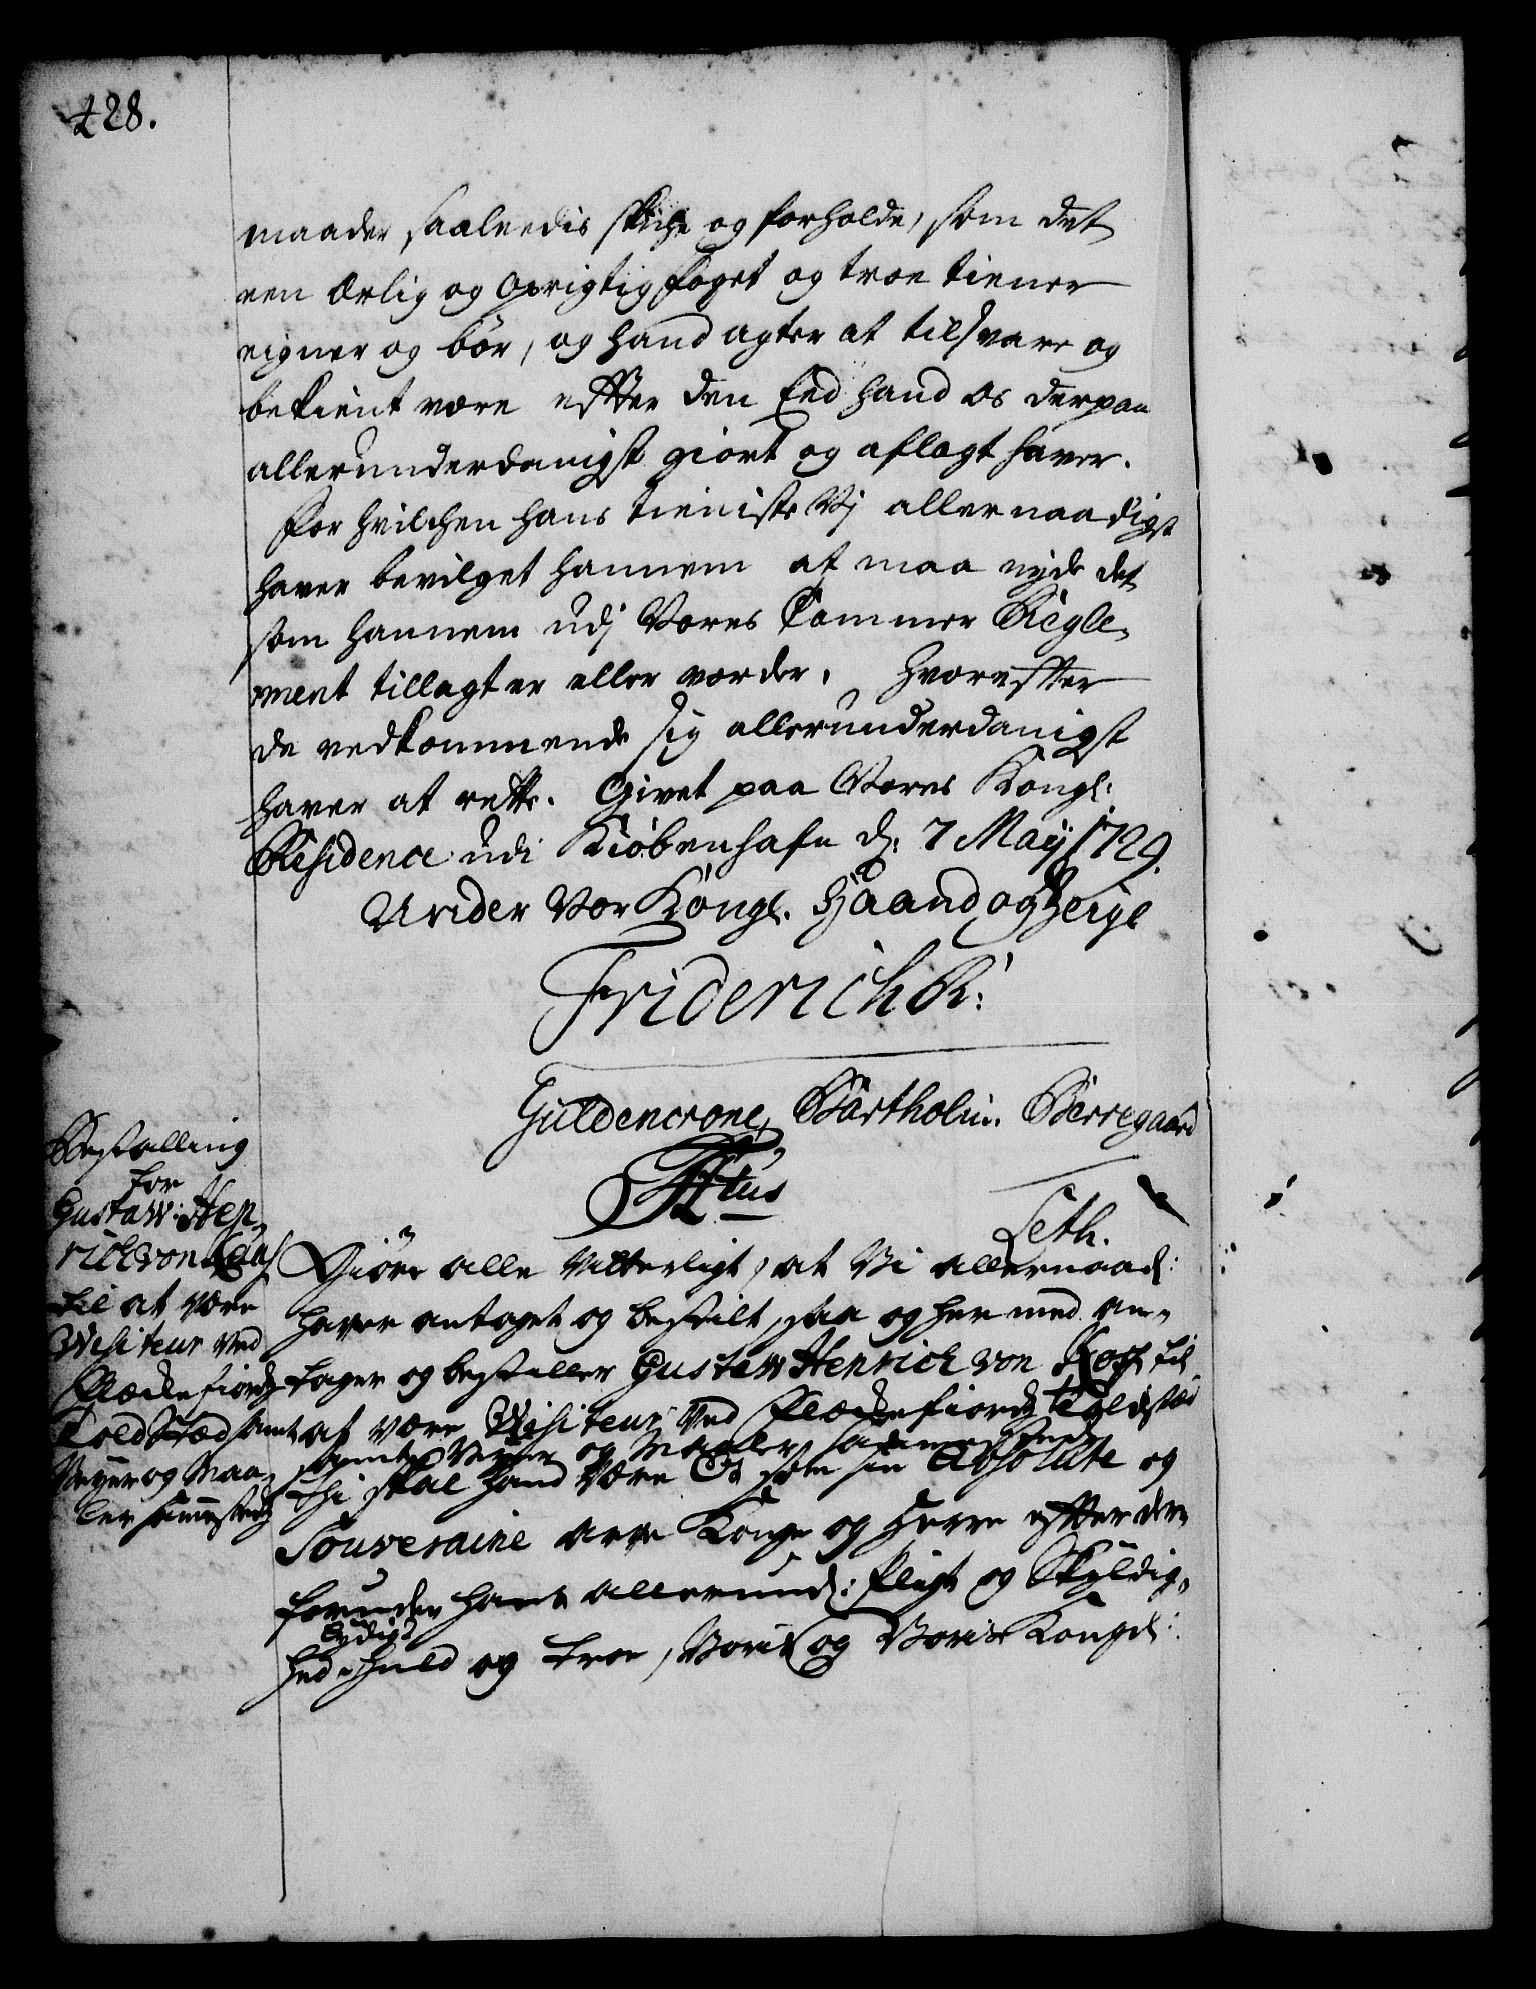 428.
maader saaledis skiche og forholde, som det
een ærlig og oprigtig Foget og troe tiener
eigner og bör, og hand agter at tilsvare og
bekient være effter den Eed hand os derpaa
allerunderdanigst giort og aflagt haver.
For hvilchen hans tieniste Vj allernaadigst
haver bevilget hannem at maa nyde det
som hannem udj Vores Cammer Regle-
ment tillagt er eller vorder. Hvoreffter
de vedkommende sig allerunderdanigst
haver at rette. Givet paa Vores Kongl:
Residence udi Kiöbenhafn d: 7 Maij 1729.
Under Vor Kongl. Haand og Zeigl
Friderich R:
Guldencrone, Bartholin. Berregaard
Seth.
Bestalling
for
Gustaw: Hen-
rich von
til at være
Visiteur ved
Flæchefiords
Toldsted samt
Veyer og Maa-
ler sammesteds
Giöre alle Vitterligt, at Vi allernaad:
haver antaget og bestilt, saa og her med an-
tager og bestiller Gustaw Henrich von Koss til
at være Visiteur ved Flæchefiords Toldsted
samt Veyer og Maaler sammesteds
Thi skal hand være Os som sin Absolute og
Souveraine arve Konge og Herre effter des
foruden hans allerund: Pligt og Skyldig-
lydig
hed, huld og troe, Voris og Voris Kongel: